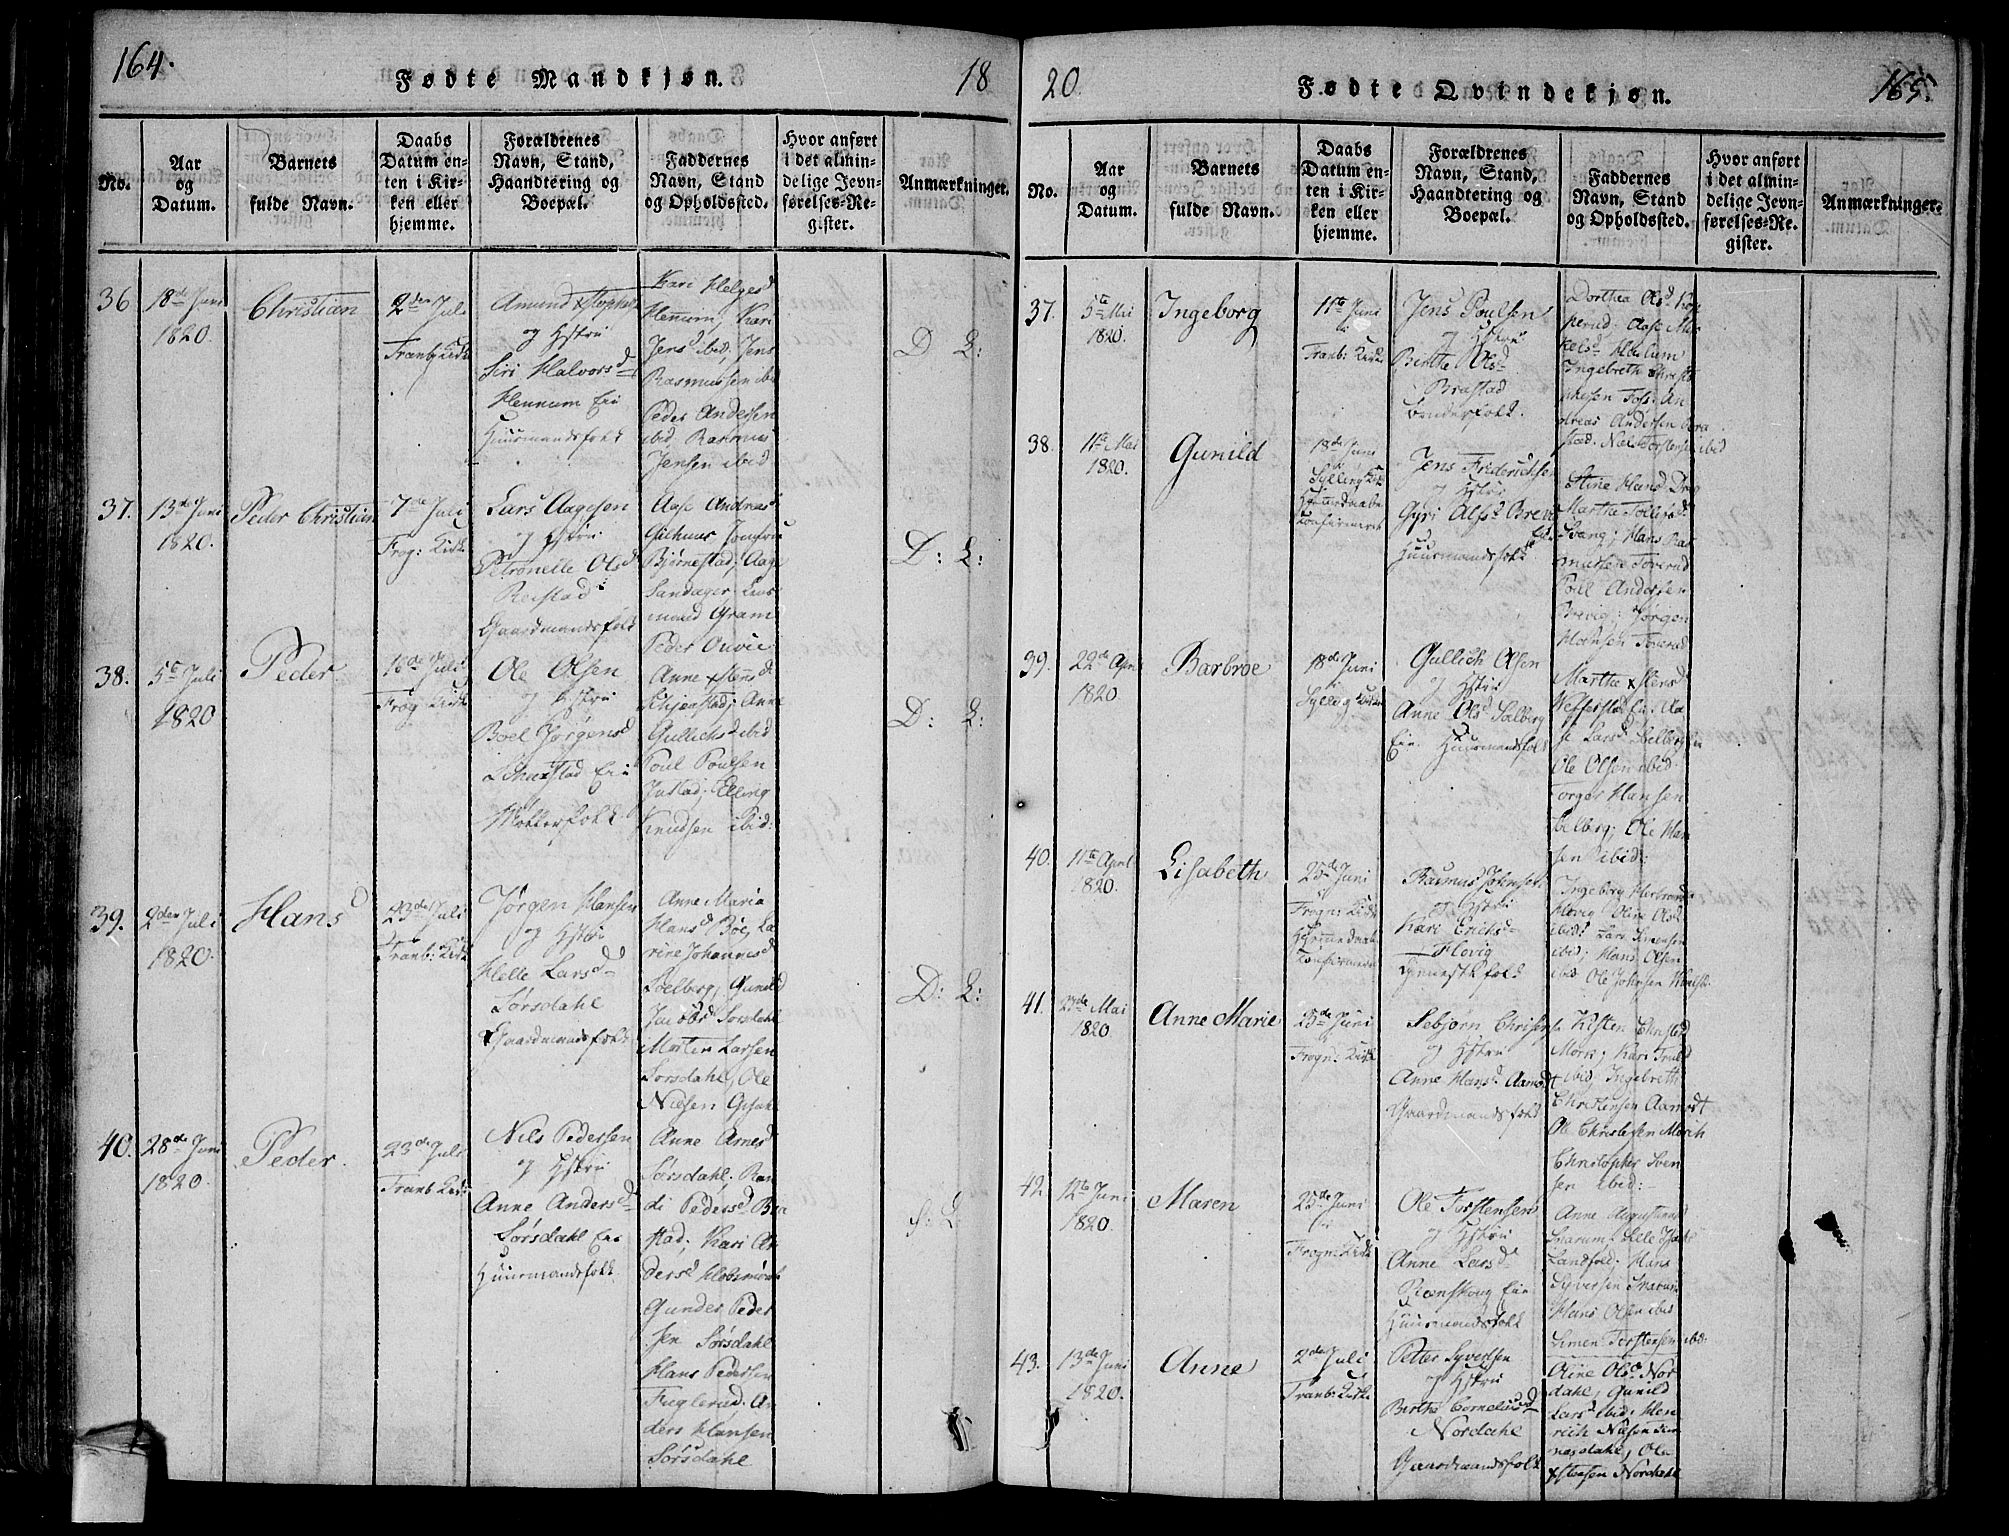 164.
Fødte Mandkjøn.
18
No.
Aar
og
Datum.
Barnets
fulde Navn.
Daabs
Datum en-
ten i Kir-
ken eller
hjemme.
Forældrenes
Navn, Stand,
Haandtering og
Boepæl.
Faddernes
Navn, Stand
og Opholdssted.
Hvor anført
i det almin-
delige Jevn-
førelses-Re-
gister.
Anmærkninger.
36
18de Juni
1820.
Christian
2den Juli
Tranb: Kirke
Amund
og Hstru
Siri Halvorsd
Hennum Eie
Huusmandsfolk
Kari Helgesd
Hennum, Kari
Jensd ibid. Jens
Rasmussen ibid
Peder Andersen
ibid, Rasmus
Jensen ibid
D L:
37.
13de Juni
1820.
Peder Christian
7de Juli
Frog: Kirke
Lars Aagesen
og Hstru
Petronelle Olsd
Reistad
Gaardmandsfolk
Aase Andreasd
Gilhuus Jomfru
Bjørnestad; Aage
Sandager
Gram
Peder
D: L:
38.
5te Juli
1820
Peder
16de Juli
Frog Kirke
Ole Olsen
og Hstru
Boel Jørgensd
Eie
Anne
Anne
Gullichsd ibid
Poul Poulsen
Justad; Elling
Knudsen ibid:
D: L:
39.
2den Juli
1820.
Hans
23de Juli
Tranb: Kirke
Jørgen Hansen
og Hstru
Helle Larsd
Sørsdahl
Gaardmandsfolk
Anne Maria
Hansd Bøe, La
rine Johannesd
Soelberg, Gunild
Jacobsd Sørsdahl
Morten Larsen
Sørsdahl, Ole
Nielsen
D: L:
40.
28de Juni
1820
Peder.
23de Juli
Tranb: Kirke
Nils Pedersen
og Hstru
Anne Andersd
Sørsdahl Eie
Huusmandsfolk
Anne Arnesd
Sørsdahl. Ran
di Pedersd Bra
stad; Kari An
dersd
Gunder Peder
sen Sørsdahl
Hans Pedersen
Fuglerud. An
ders Hansen
Sørsdahl
L
20.
Fødte Qvindekjøn.
165.
No.
Aar
og
Datum.
Barnets
fulde Navn.
Daabs
Datum en-
ten i Kir-
ken eller
hjemme.
Forældrenes
Navn, Stand,
Haandtering og
Boepæl.
Faddernes
Navn, Stand
og Opholdssted.
Hvor anført
i det almin-
delige Jevn-
førelses-Re-
gister.
Anmærkninger.
37.
5te Mai
1820.
Ingeborg
11te Juni
i
Tranb: Kirke
Jens Poulsen
og Hstru
Berthe Olsd
Brastad
Bondefolk.
Dorthea Olsd Kop
perud; Aase Mi
kelsd
Ingebreth
An
dreas Andersen Bra
stad. Niels Torstensen ibid
38.
11te Mai
1820.
Gunild
18de Juni
i
Sylling Kirke
Hjemmedaaben
Confirmeret
Jens Friderichsen
og Hstru
Gyri Olsd Brevig
Eie
Huusmandsfolk
Stine
Marthe Tollefsd
Hans Ras
mussen Toverud
Poul Andersen
Brevig; Jørgen
Hansen Toverud
39.
22de April
1820.
Barbroe
18de Juni
i
Sylling Kirke
Gullich Olsen
og Hstru
Anne Olsd Solberg
Eie. Huusmandsfolk
Marthe
Aa
se Larsd Solberg
Ole Olsen ibid
Torger Hansen
Solberg; Ole Han
sen ibid:
40.
11te April
1820.
Lisabeth
25de Juni
i
Frogn: Kirke
Hjemmedaaben
Confirmeret
Rasmus Johnsen
og Hstru
Kari Erichsd
Hovig
Ingeborg
Hovig Oline Olsd
ibid: Lars Simensen
ibid; Hans Olsen
ibid Ole Johnsen
41.
27de Mai
1820
Anne Marie
25de Juni
i
Frogn: Kirke
Sebjørn Chrisens
og Hstru
Anne Hansd Aamodt
Gaardmandsfolk
Kisten
Mørk; Kari Trulsd
ibid; Ingebreth
Christensen Aamodt
Ole Christensen Mørch
Christopher Sven
sen ibid:
42.
12te Juni
1820.
Maren
25de Juni
i
Frogn: Kirke
Ole Torstensen
og Hstru
Anne Larsd
Eie
Huusmandsfolk
Anne
Hans
Syversen
Hans Olsen ibid
Simen Torstensen ibid:
43.
13de Juni
1820.
Anne
2den Juli
Tranb: Kirke
Petter Syvertsen
og Hstru
Berthe Corneliusd
Nordahl
Gaardmandsfolk
Oline Olsd Nor
dahl, Gunild
Larsd ibid: Hen
rich Nielsen
Ole
Nordahl